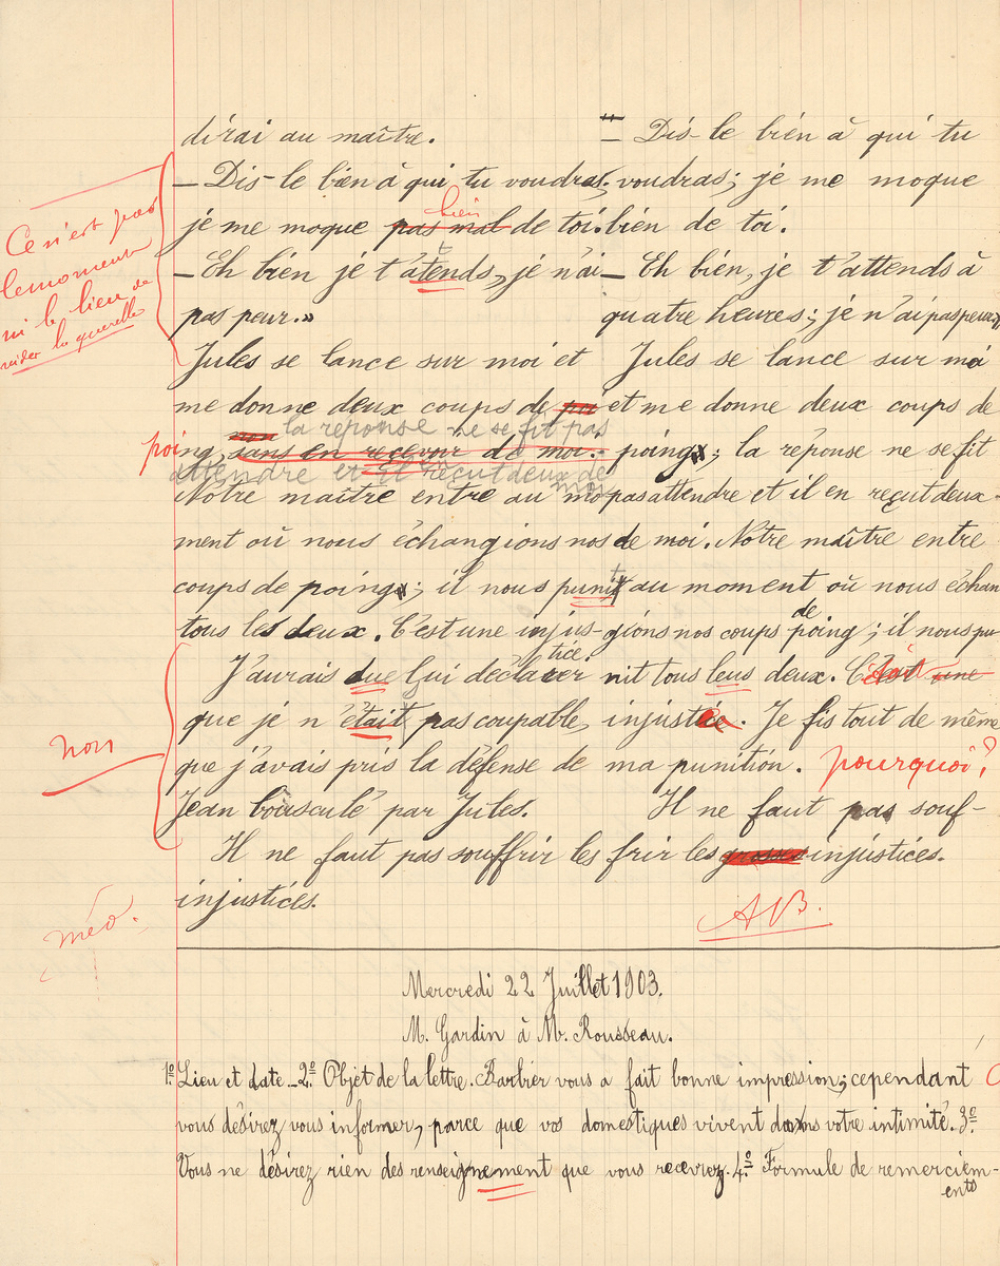 dirai au maître.
— Dis-le bien à qui tu voudras;
je me moque pas mal bien de toi.
— Eh bien je t'attends, je n'ai
pas peur.»
Jules se lance sur moi et
me donne deux coups de poi
poing, sans en recevoir de moi.
la réponse ne se fit pas
attendre et il reçut deux de
moi
Notre maître entre au mo
ment où nous échangions nos
coups de poings; il nous punit
tous les deux. C'est une injus-
tice
J'aurais due lui déclarer
que je n'était pas coupable,
que j'avais pris la défense de
Jean bousculé par Jules.
Il ne faut pas souffrir les
injustices.
— Dis-le bien à qui tu
voudras; je me moque
bien de toi.
— Eh bien, je t'attends à
quatre heures; je n'ai pas peur»
Jules se lance sur moi
et me donne deux coups de
poings; la réponse ne se fit
pas attendre et il en reçut deux
de moi. Notre maître entre
au moment où nous échan
gions nos coups de poing; il nous pu
nit tous leus deux. C'était une
injustice. Je fis tout de même
ma punition. pourquoi?
Il ne faut pas souf-
frir les grosses injustices.
AB.
Ce n'est pas
le moment
ni le lieu de
vider la querelle
non
méd.
Mercredi 22 Juillet 1903.
M. Gardin à M. Rousseau.
1º Lieu et date – 2º Objet de la lettre. Barbier vous a fait bonne impression; cependant
vous désirez vous informer, parce que vos domestiques vivent dans votre intimité. 3º
Vous ne désirez rien des renseignement que vous recevrez. 4º Formule de remerciem-
ents